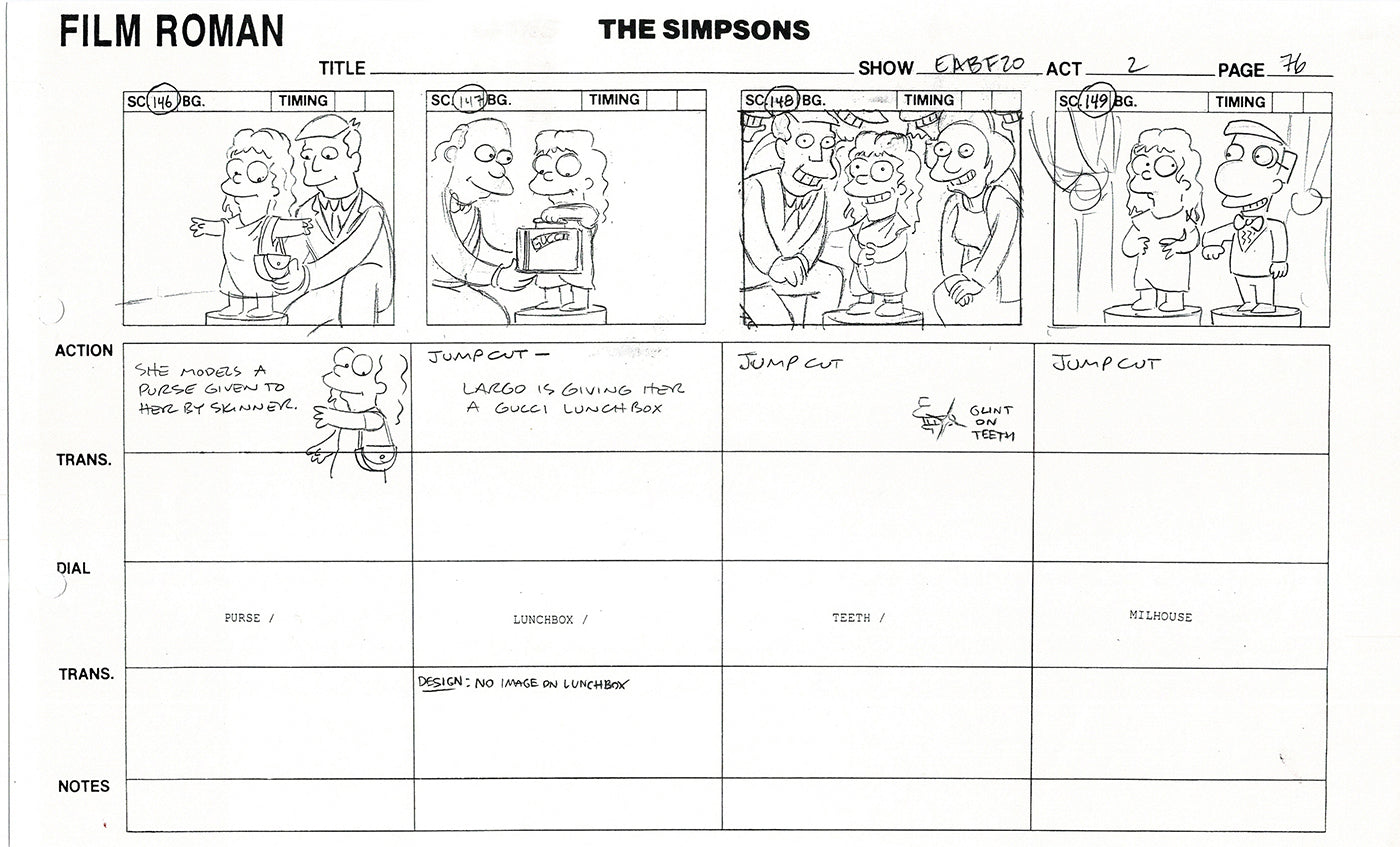 FILM ROMAN
THE SIMPSONS
TITLE SHOW EABF20 ACT 2 PAGE 76
SC. 146 BG. TIMING
SC. 147 BG. TIMING
SC. 148 BG. TIMING
SC. 149 BG. TIMING
GUCCI
ACTION
SHE MODELS A
PURSE GIVEN TO
HER BY SKINNER.
JUMP CUT —
LARGO IS GIVING HER
A GUCCI LUNCHBOX
JUMP CUT
GLINT
ON
TEETH
JUMP CUT
TRANS.
DIAL
PURSE /
LUNCHBOX /
TEETH /
MILHOUSE
TRANS.
DESIGN: NO IMAGE ON LUNCHBOX
NOTES